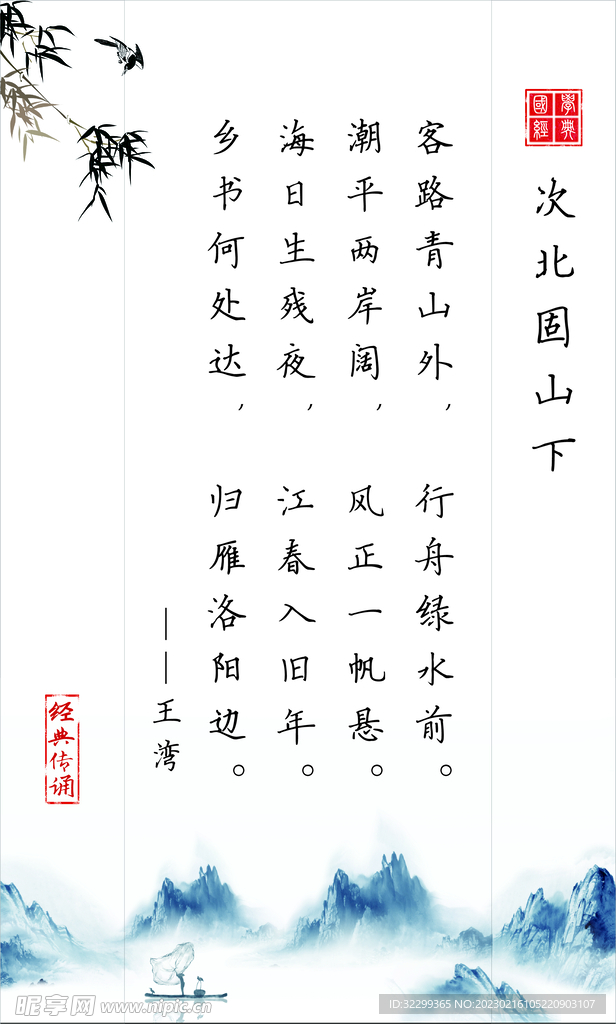 國學經典
次北固山下
客路青山外，行舟绿水前。
潮平两岸阔，风正一帆悬。
海日生残夜，江春入旧年。
乡书何处达，归雁洛阳边。
——王湾
经典传诵
昵享网 www.nipic.cn
ID:32299365 NO:20230216105220903107